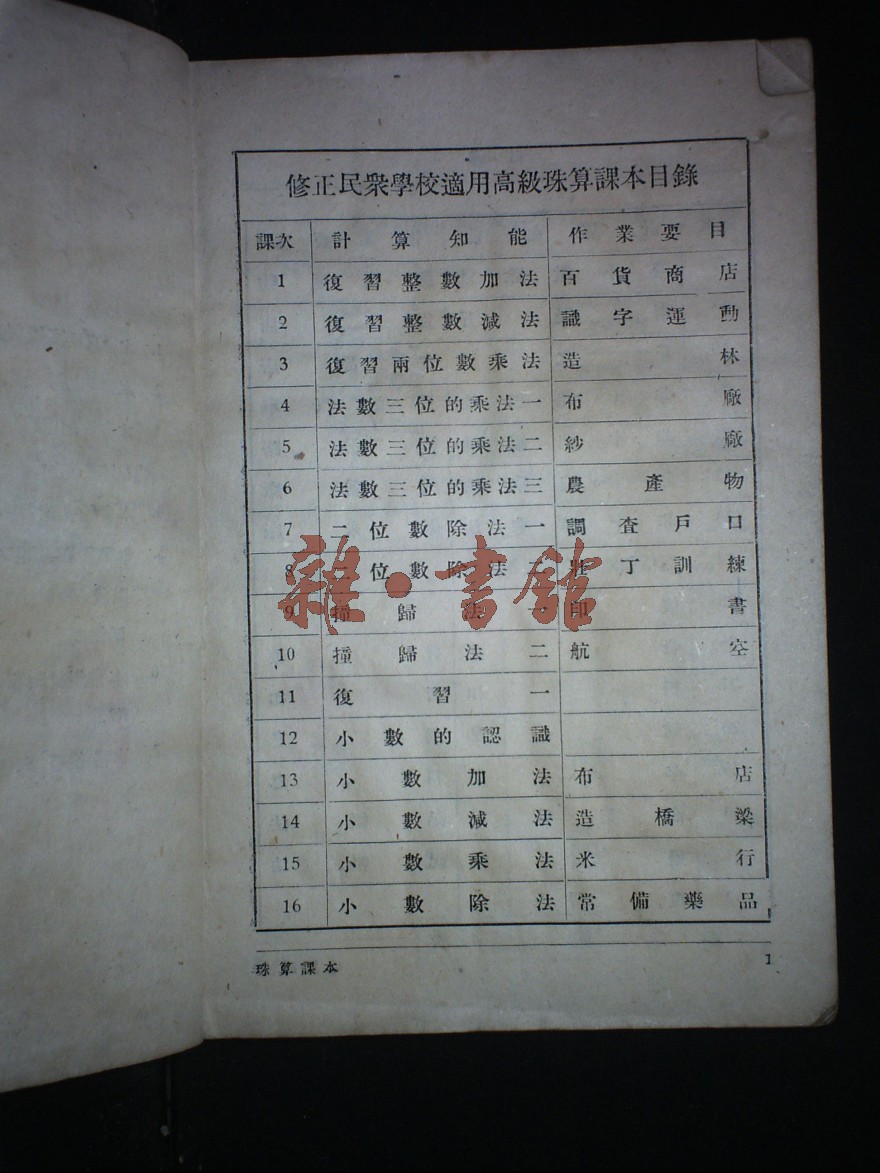 修正民衆學校適用高級珠算課本目錄
課次 計算知能 作業要目
1 復習整數加法 百貨商店
2 復習整數減法 識字運動
3 復習兩位數乘法 造林
4 法數三位的乘法一 布廠
5 法數三位的乘法二 紗廠
6 法數三位的乘法三 農產物
7 二位數除法一 調查戶口
8 二位數除法二 壯丁訓練
9 撞歸法一 印書
10 撞歸法二 航空
11 復習一
12 小數的認識
13 小數加法 布店
14 小數減法 造橋梁
15 小數乘法 米行
16 小數除法 常備藥品
珠算課本 1
雜·書館